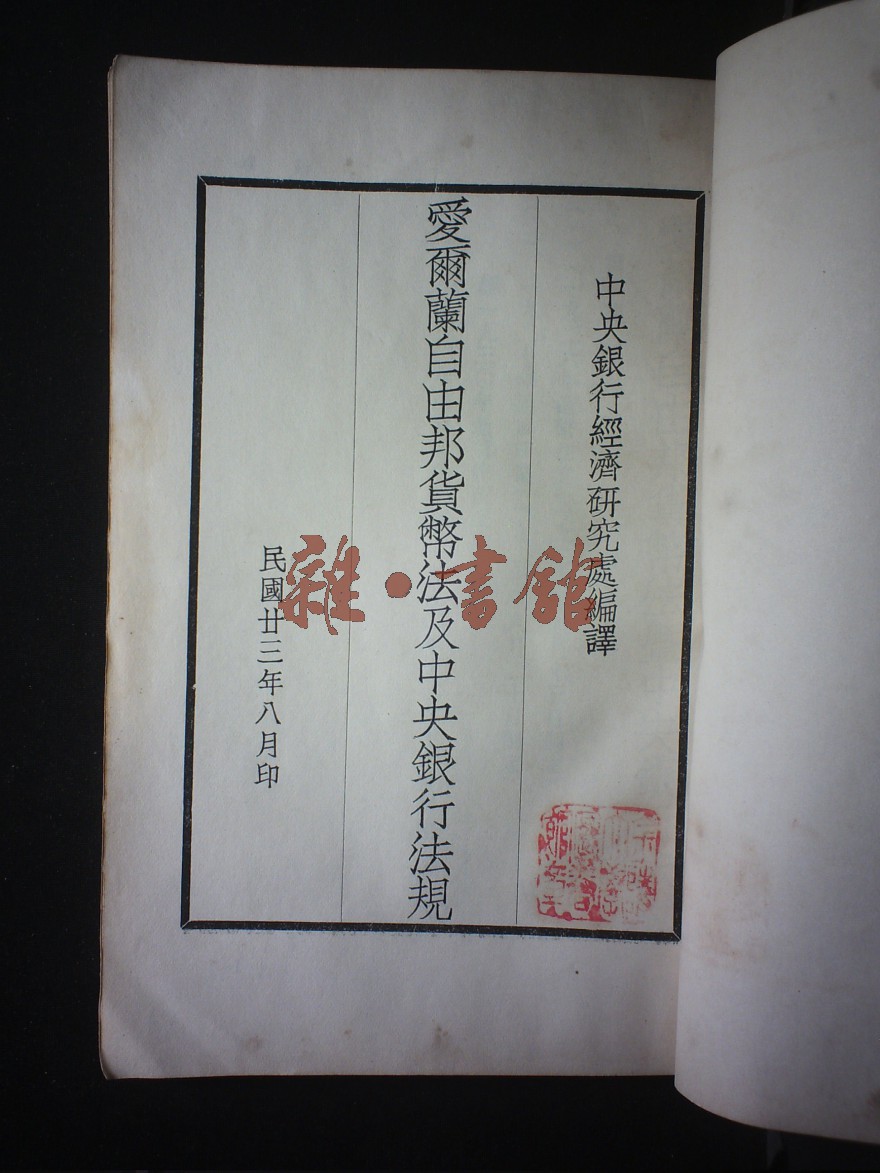 中央銀行經濟研究處編譯
愛爾蘭自由邦貨幣法及中央銀行法規
民國廿三年八月印
雜·書館